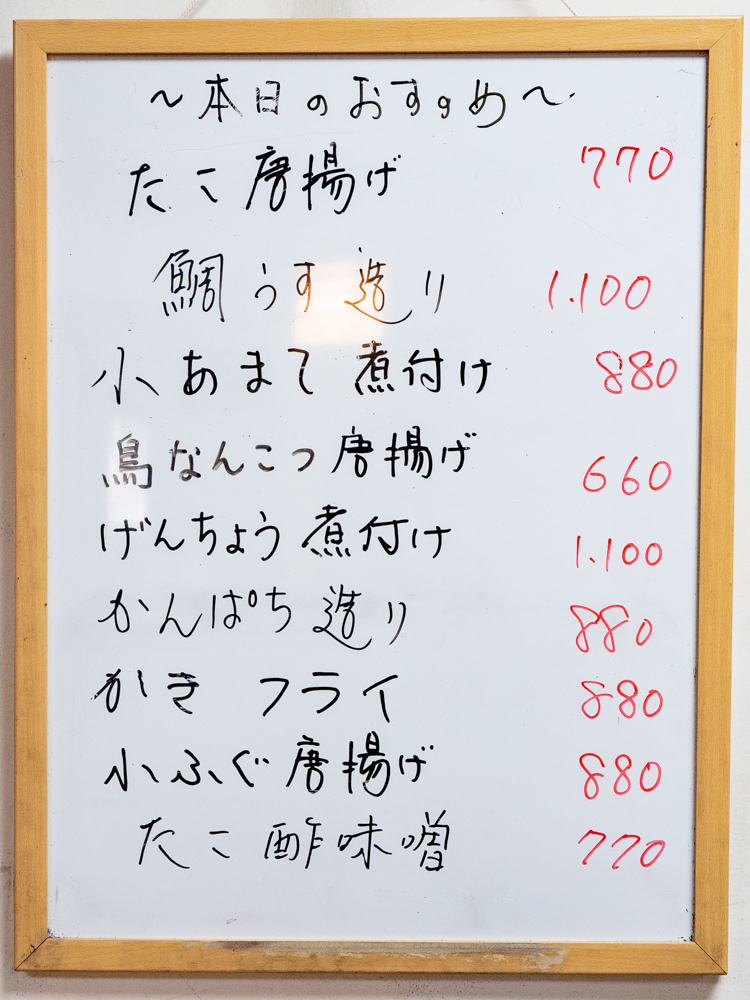 ～本日のおすすめ～
たこ唐揚げ 770
鯛うす造り 1.100
小あまて煮付け 880
鳥なんこつ唐揚げ 660
げんちょう煮付け 1.100
かんぱち造り 880
かき フライ 880
小ふぐ唐揚げ 880
たこ酢味噌 770